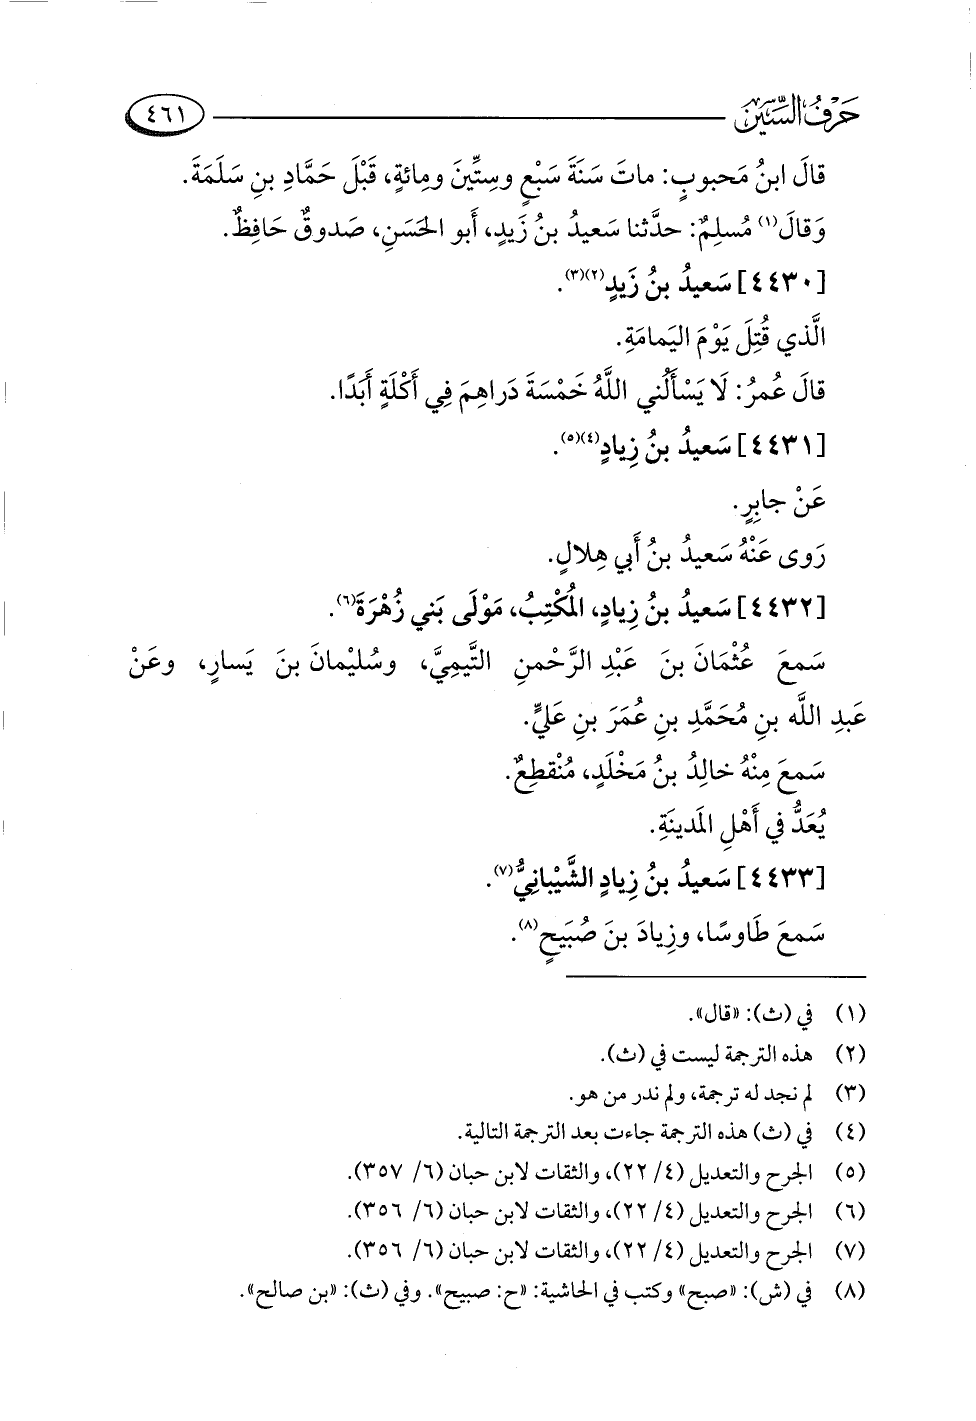 حَرْفُ السِّيْنِ
٤٦١
قالَ ابنُ مَحبوبٍ: ماتَ سَنَةَ سَبْعٍ وسِتِّينَ ومِائةٍ، قَبْلَ حَمَّادِ بنِ سَلَمَةَ.
وَقالَ(١) مُسلِمٌ: حدَّثنا سَعيدُ بنُ زَيدٍ، أَبو الحَسَنِ، صَدوقٌ حَافِظٌ.
[٤٤٣٠] سَعيدُ بنُ زَيدٍ(٢)(٣).
الَّذي قُتِلَ يَوْمَ اليَمامَةِ.
قالَ عُمرُ: لَا يَسْأَلُني اللَّهُ خَمْسَةَ دَراهِمَ فِي أَكْلَةٍ أَبَدًا.
[٤٤٣١] سَعيدُ بنُ زِيادٍ(٤)(٥).
عَنْ جابِرٍ.
رَوى عَنْهُ سَعيدُ بنُ أَبي هِلالٍ.
[٤٤٣٢] سَعيدُ بنُ زِيادٍ، المُكْتِبُ، مَوْلَى بَني زُهْرَةَ(٦).
سَمعَ عُثْمَانَ بنَ عَبْدِ الرَّحْمنِ التَّيمِيَّ، وسُليْمانَ بنَ يَسارٍ، وعَنْ
عَبدِ اللَّه بنِ مُحَمَّدِ بنِ عُمَرَ بنِ عَليٍّ.
سَمعَ مِنْهُ خالِدُ بنُ مَخْلَدٍ، مُنْقطِعٌ.
يُعَدُّ في أَهْلِ المَدينَةِ.
[٤٤٣٣] سَعيدُ بنُ زِيادٍ الشَّيْبانِيُّ(٧).
سَمعَ طَاوسًا، وزِيادَ بنَ صُبَيحٍ(٨).
(١) في (ث): «قال».
(٢) هذه الترجمة ليست في (ث).
(٣) لم نجد له ترجمة، ولم ندر من هو.
(٤) في (ث) هذه الترجمة جاءت بعد الترجمة التالية.
(٥) الجرح والتعديل (٤/ ٢٢)، والثقات لابن حبان (٦/ ٣٥٧).
(٦) الجرح والتعديل (٤/ ٢٢)، والثقات لابن حبان (٦/ ٣٥٦).
(٧) الجرح والتعديل (٤/ ٢٢)، والثقات لابن حبان (٦/ ٣٥٦).
(٨) في (ش): «صبح» وكتب في الحاشية: «ح: صبيح». وفي (ث): «بن صالح».